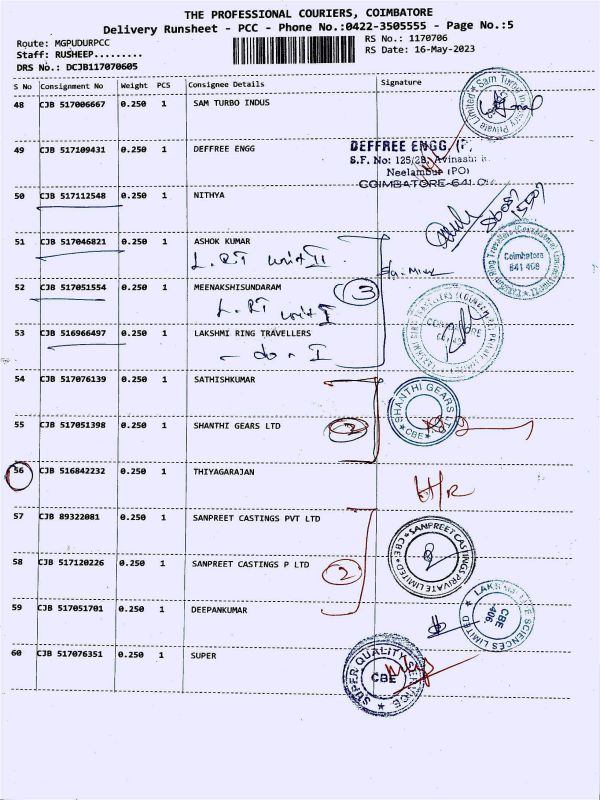 THE PROFESSIONAL COURIERS, COIMBATORE
Delivery Runsheet - PCC - Phone No.:0422-3505555 - Page No.:5
Route: MGPUDURPCC RS No.: 1170706
Staff: RUSHEEP......... RS Date: 16-May-2023
DRS No.: DCJB117070605
S No Consignment No Weight PCS Consignee Details Signature
48 CJB 517006667 0.250 1 SAM TURBO INDUS
Sam Turbo Industry Private Limited
49 CJB 517109431 0.250 1 DEFFREE ENGG
DEFFREE ENGG. (P.
S.F. No: 125/2B, Avinashi R.
Neelambur (PO)
COIMBATORE-641 0
50 CJB 517112548 0.250 1 NITHYA
51 CJB 517046821 0.250 1 ASHOK KUMAR
L.RT unit II
Coimbatore
641 408
52 CJB 517051554 0.250 1 MEENAKSHISUNDARAM
L.RT unit I
3
53 CJB 516966497 0.250 1 LAKSHMI RING TRAVELLERS
- do - I
54 CJB 517076139 0.250 1 SATHISHKUMAR
SHANTHI GEARS LTD
CBE
55 CJB 517051398 0.250 1 SHANTHI GEARS LTD
2
56 CJB 516842232 0.250 1 THIYAGARAJAN
57 CJB 89322081 0.250 1 SANPREET CASTINGS PVT LTD
SANPREET CASTINGS PRIVATE LIMITED
CBE
58 CJB 517120226 0.250 1 SANPREET CASTINGS P LTD
2
59 CJB 517051701 0.250 1 DEEPANKUMAR
SCIENCES LIMITED
CBE
-406
60 CJB 517076351 0.250 1 SUPER
SUPER QUALITY SERVICE
CBE